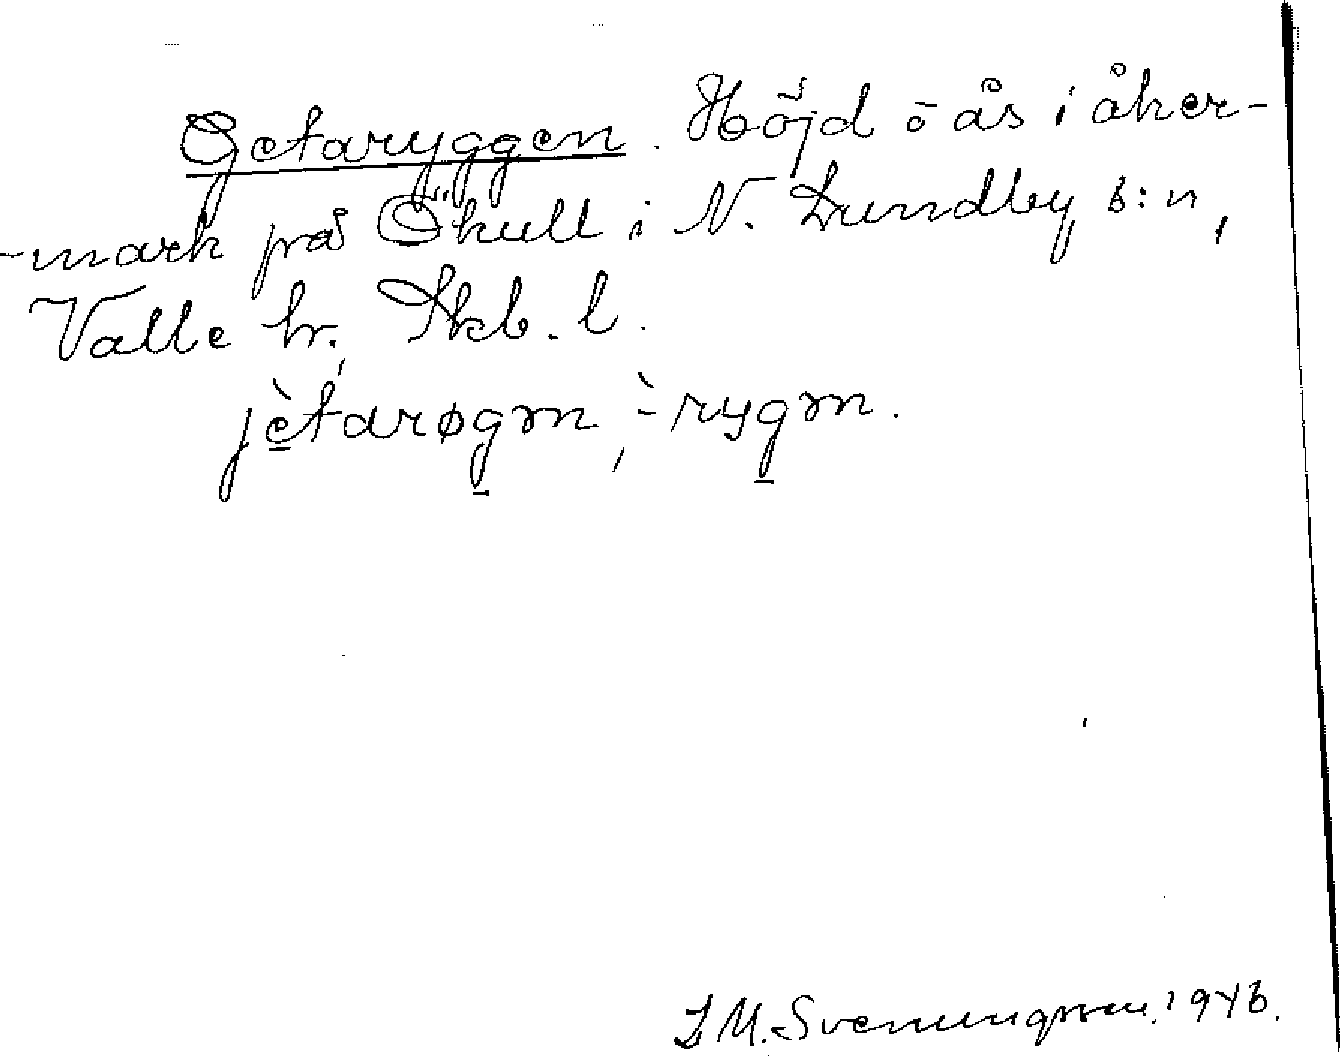 Getaryggen. Höjd o ås i åker-
-mark på Ökull i N. Lundby s:n,
Valle hr, Skb. l.
jètarøgən, ̀-rygən.
J M. Svenungsson. 1946.